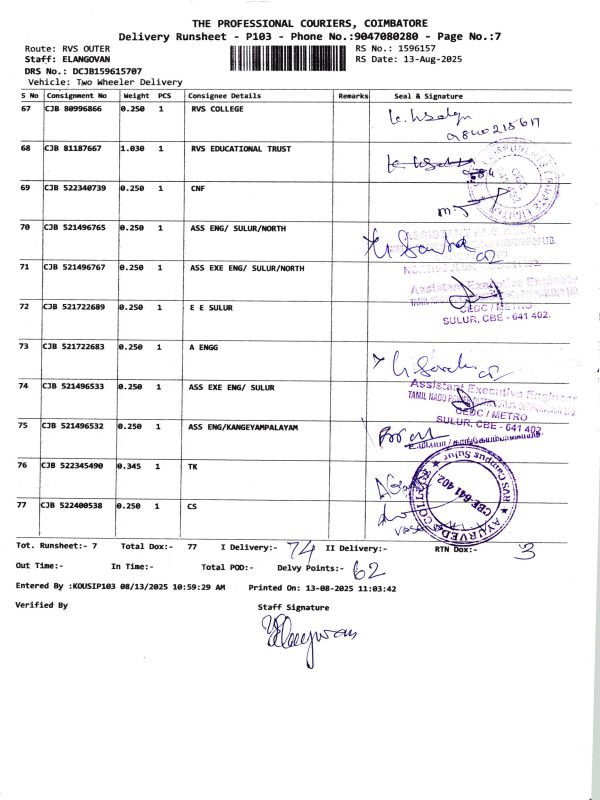 THE PROFESSIONAL COURIERS, COIMBATORE
Delivery Runsheet - P103 - Phone No.:9047080280 - Page No.:7
Route: RVS OUTER
RS No.: 1596157
Staff: ELANGOVAN
RS Date: 13-Aug-2025
DRS No.: DCJB159615707
Vehicle: Two Wheeler Delivery
S No Consignment No Weight PCS Consignee Details Remarks Seal & Signature
67 CJB 80996866 0.250 1 RVS COLLEGE
68 CJB 81187667 1.030 1 RVS EDUCATIONAL TRUST
69 CJB 522340739 0.250 1 CNF
70 CJB 521496765 0.250 1 ASS ENG/ SULUR/NORTH
71 CJB 521496767 0.250 1 ASS EXE ENG/ SULUR/NORTH
Assistant Executive Engineer
CEDC / METRO
SULUR, CBE - 641 402.
72 CJB 521722689 0.250 1 E E SULUR
73 CJB 521722683 0.250 1 A ENGG
74 CJB 521496533 0.250 1 ASS EXE ENG/ SULUR
Assistant Executive Engineer
CEDC / METRO
SULUR, CBE - 641 402.
75 CJB 521496532 0.250 1 ASS ENG/KANGEYAMPALAYAM
76 CJB 522345490 0.345 1 TK
RVS Campus Sulur
CBE-641 402.
77 CJB 522400538 0.250 1 CS
Tot. Runsheet:- 7 Total Dox:- 77 I Delivery:- 74 II Delivery:- RTN Dox:- 3
Out Time:- In Time:- Total POD:- Delvy Points:- 62
Entered By :KOUSIP103 08/13/2025 10:59:29 AM Printed On: 13-08-2025 11:03:42
Verified By Staff Signature